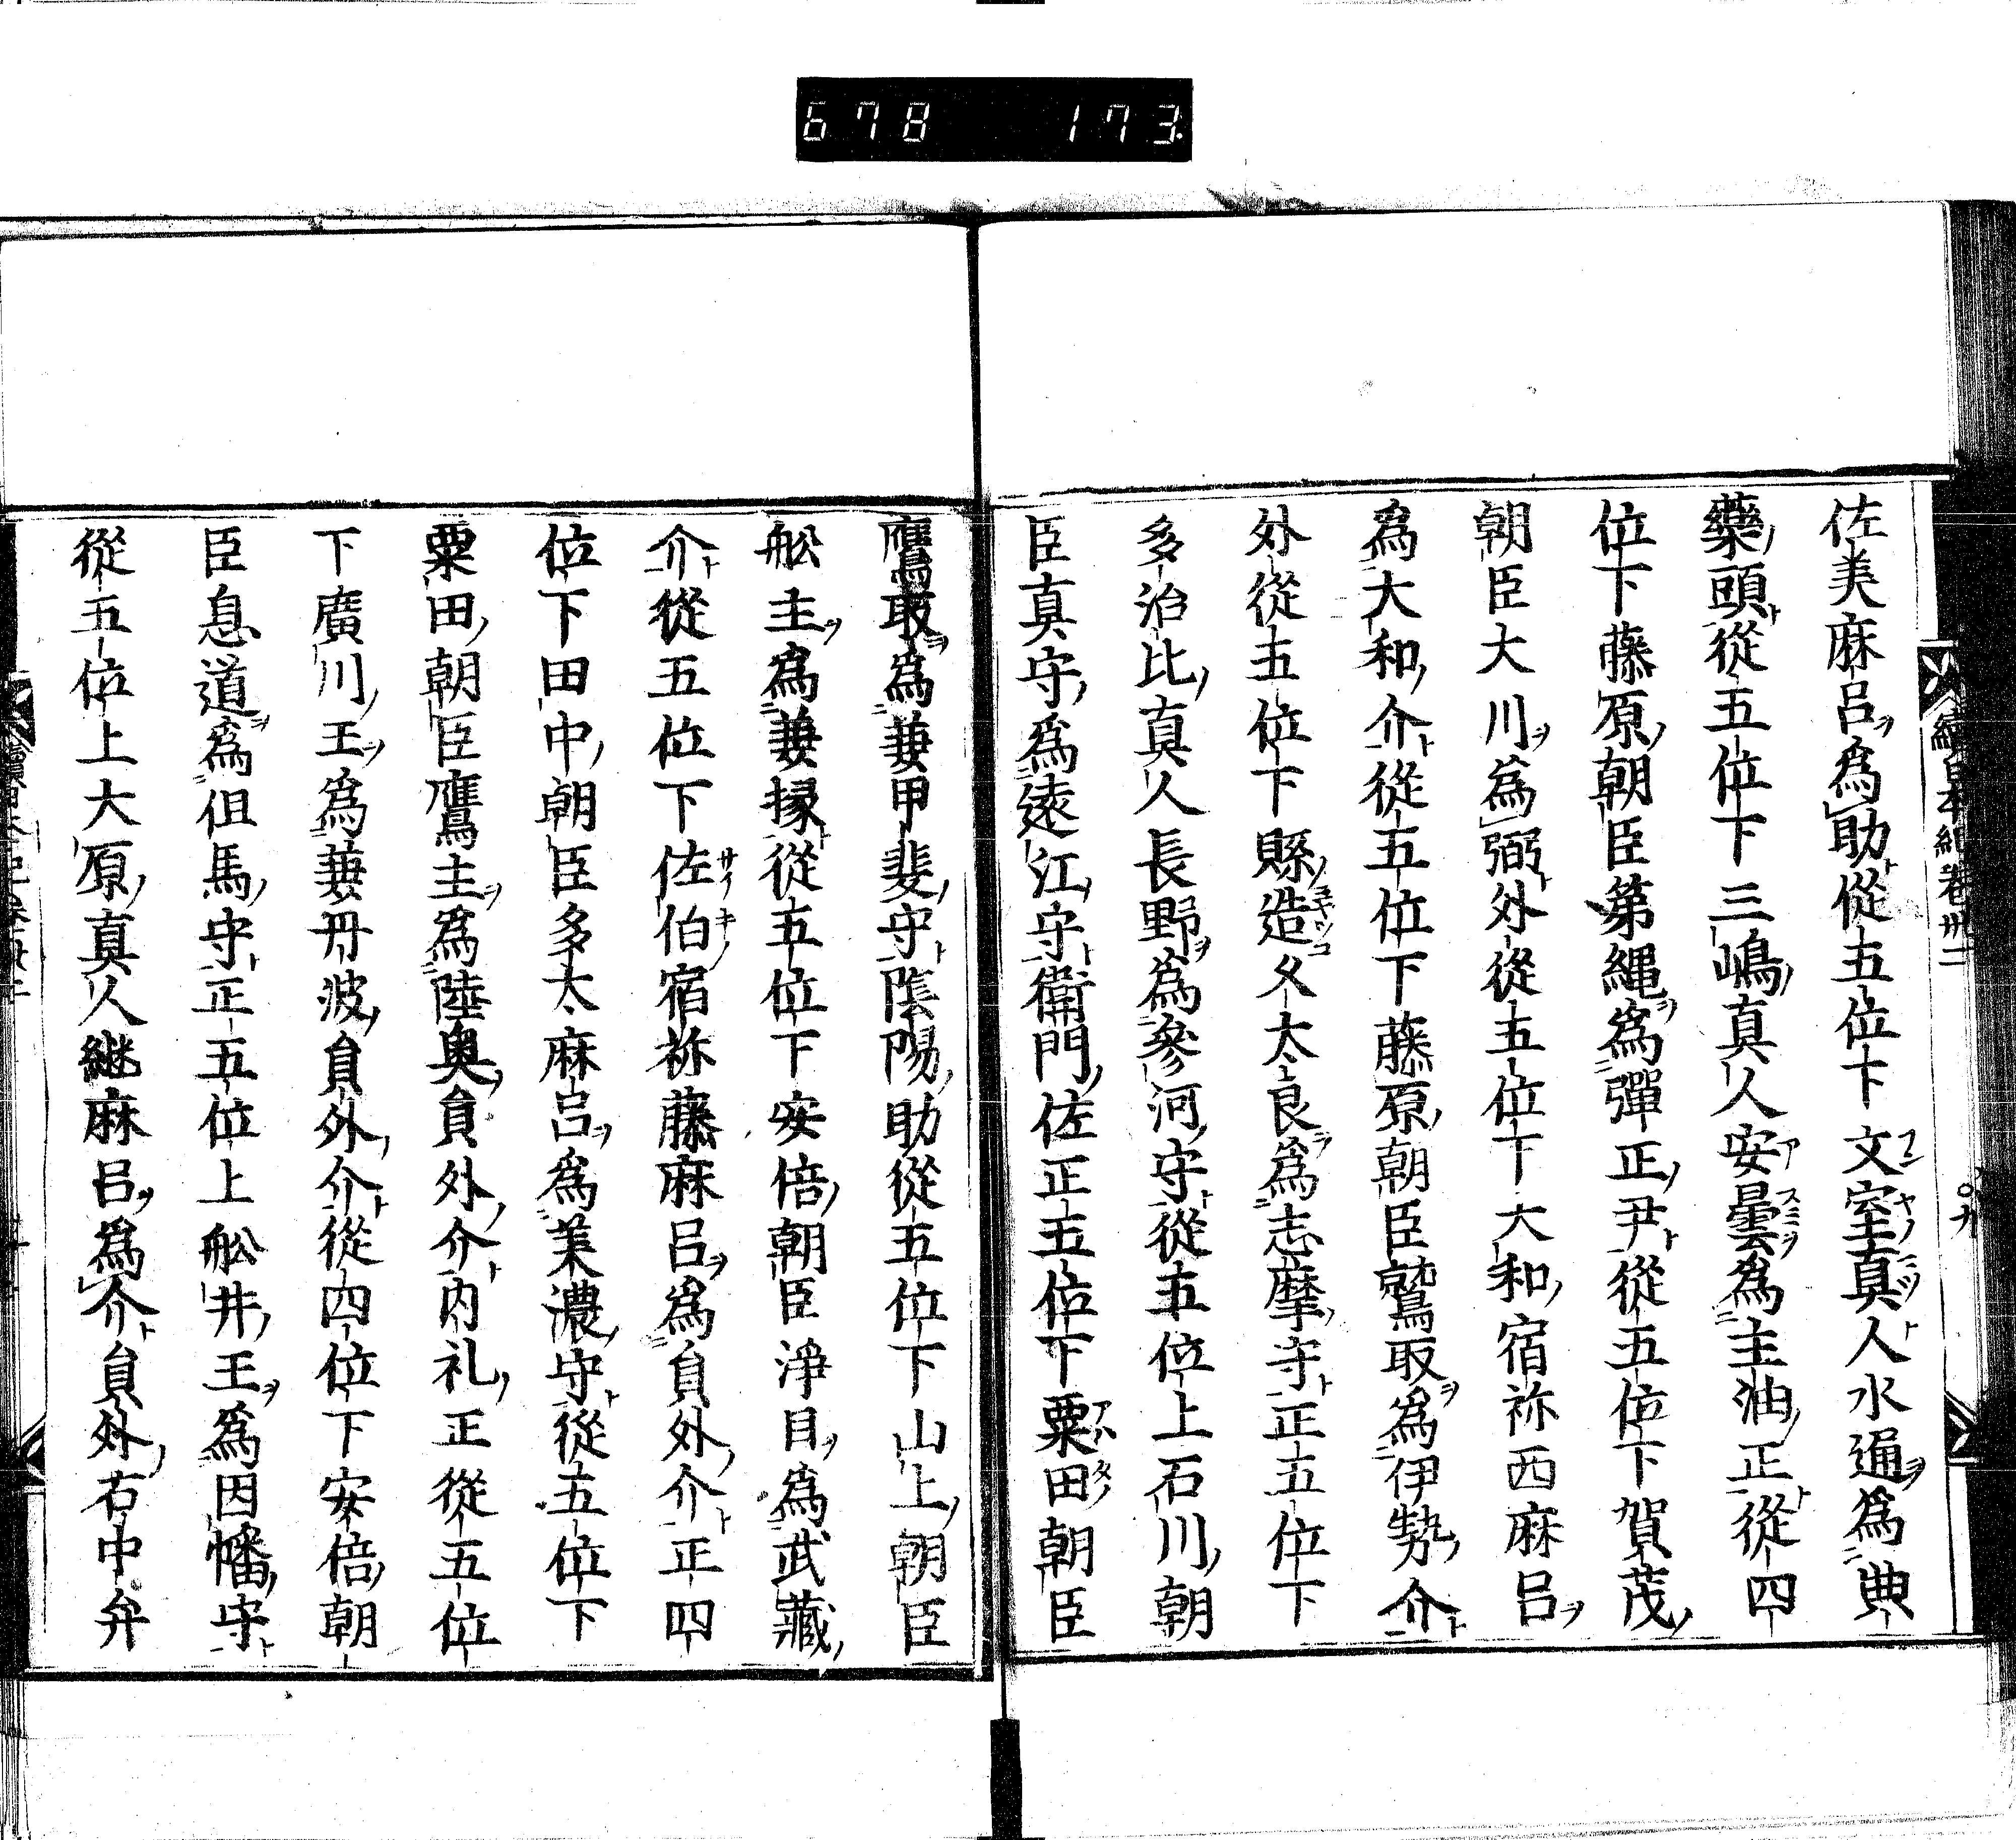 678 173
續日本紀卷卅二
佐美麻呂爲助從五位下文室真人水通爲典
藥頭從五位下三嶋真人安曇爲主油正從四
位下藤原朝臣第縄爲彈正尹從五位下賀茂
朝臣大川爲弼外從五位下大和宿祢西麻呂
爲大和介從五位下藤原朝臣鷲取爲伊勢介
外從五位下縣造久太良爲志摩守正五位下
多治比真人長野爲參河守從五位上石川朝
臣真守爲遠江守衛門佐正五位下粟田朝臣
鷹取爲兼甲斐守陰陽助從五位下山上朝臣
舩主爲兼掾從五位下安倍朝臣淨目爲武藏
介從五位下佐伯宿祢藤麻呂爲員外介正四
位下田中朝臣多太麻呂爲美濃守從五位下
粟田朝臣鷹主爲陸奥員外介内礼正從五位
下廣川王爲兼丹波員外介從四位下安倍朝
臣息道爲但馬守正五位上舩井王爲因幡守
從五位上大原真人継麻呂爲介員外右中弁